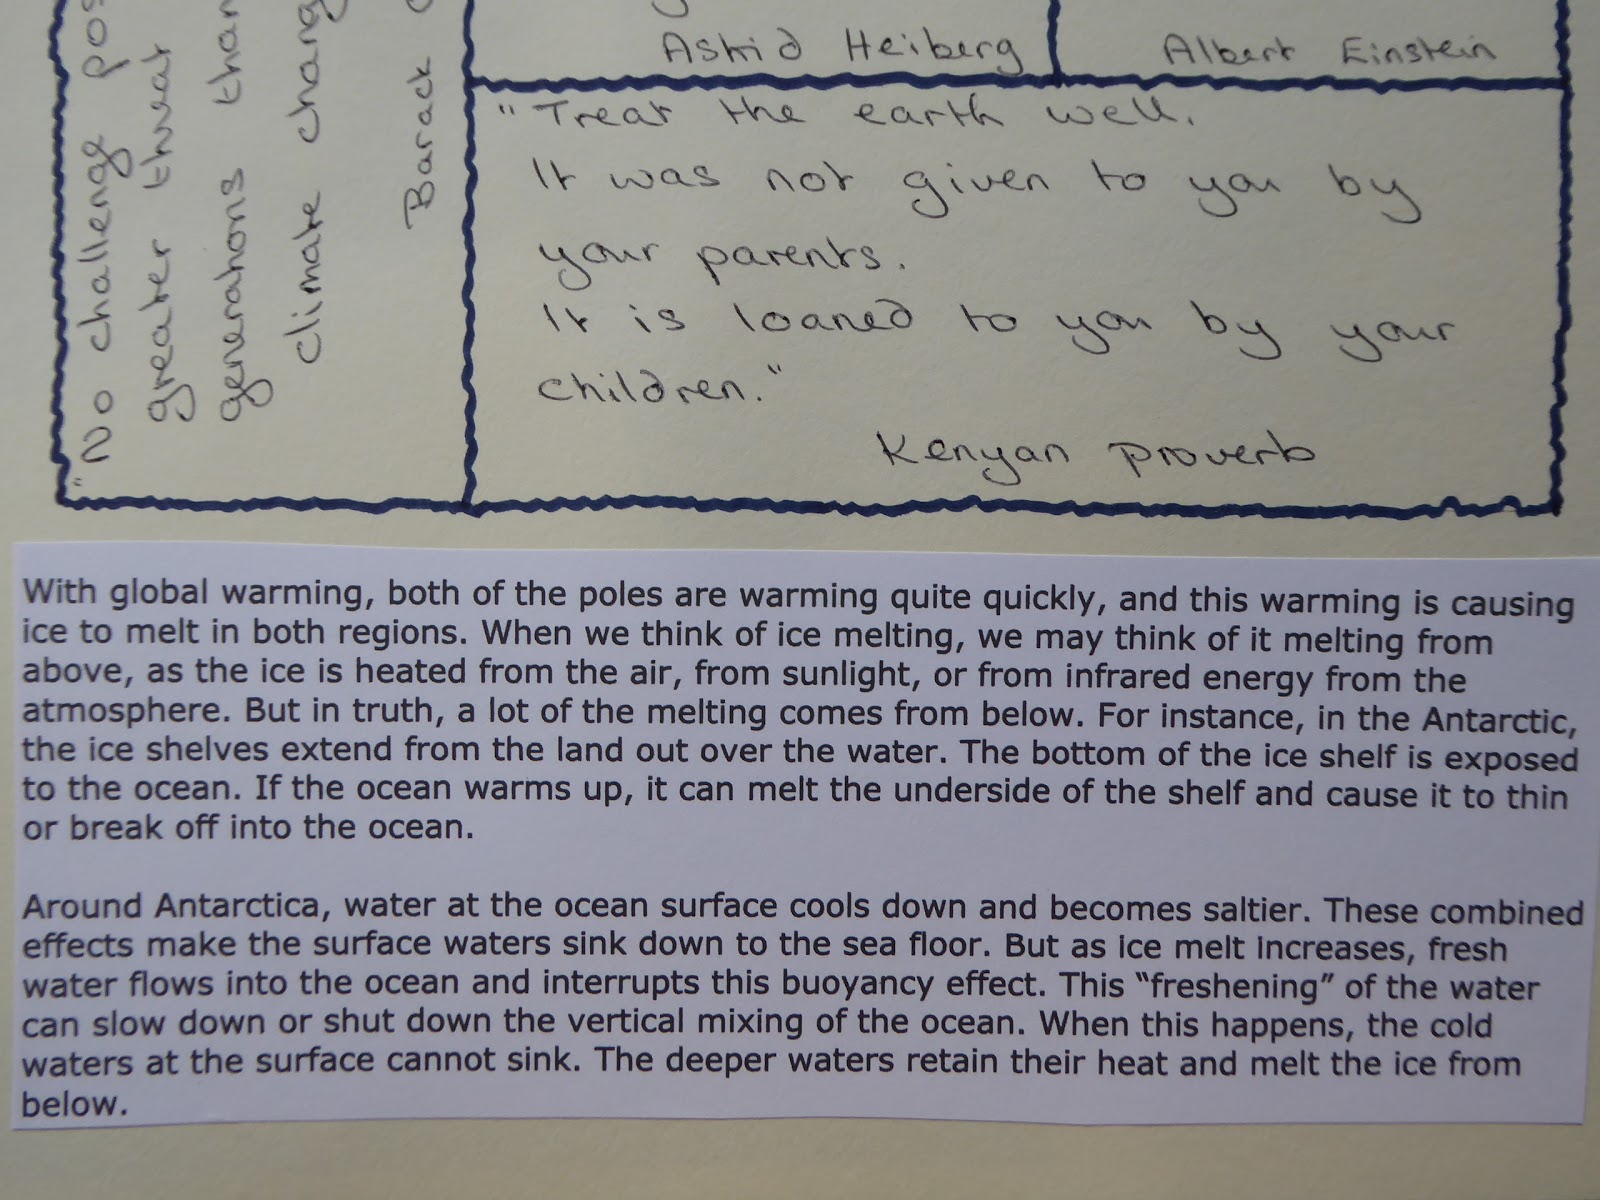 Astrid Heiberg
Albert Einstein
"No challenge
greater threat
generations than
climate
Barack
"Treat the earth well.
It was not given to you by
your parents.
It is loaned to you by your
children."
Kenyan Proverb
With global warming, both of the poles are warming quite quickly, and this warming is causing
ice to melt in both regions. When we think of ice melting, we may think of it melting from
above, as the ice is heated from the air, from sunlight, or from infrared energy from the
atmosphere. But in truth, a lot of the melting comes from below. For instance, in the Antarctic,
the ice shelves extend from the land out over the water. The bottom of the ice shelf is exposed
to the ocean. If the ocean warms up, it can melt the underside of the shelf and cause it to thin
or break off into the ocean.
Around Antarctica, water at the ocean surface cools down and becomes saltier. These combined
effects make the surface waters sink down to the sea floor. But as ice melt increases, fresh
water flows into the ocean and interrupts this buoyancy effect. This “freshening” of the water
can slow down or shut down the vertical mixing of the ocean. When this happens, the cold
waters at the surface cannot sink. The deeper waters retain their heat and melt the ice from
below.